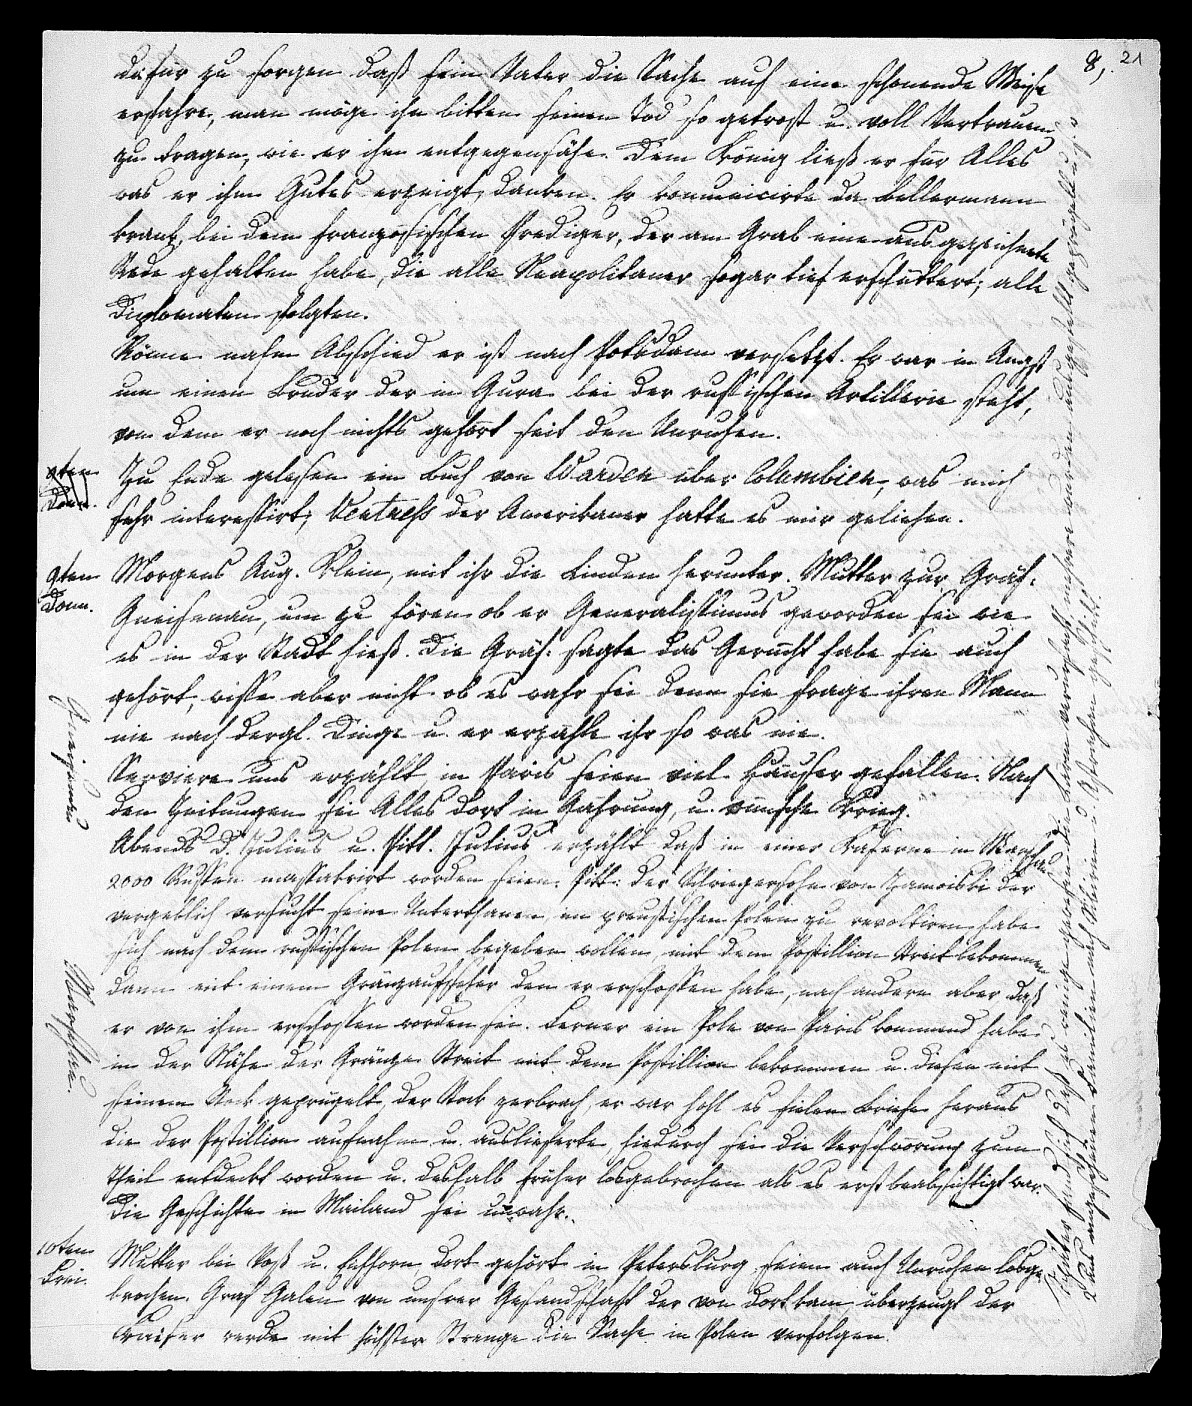 8, 21
dafür zu sorgen daß sein Vater die Sache auf eine schonende Weise
erfahre, man möge ihn bitten seinen Tod so getrost u. voll Vertrauen
zu tragen, wie er ihm entgegensähe. Dem König ließ er für Alles
was er ihm Gutes erzeigt, danken. Er communicirte da Bellermann
krank, bei dem französischen Prediger, der am Grab eine ausgezeichnete
Rede gehalten habe, die alle Neapolitaner sogar tief erschüttert; alle
Diplomaten folgten.
Rönne nahm Abschied er ist nach Potsdam versetzt. Er war in Angst
um einen Bruder der in Gura bei der russischen Artillerie steht,
von dem er noch nichts gehört seit den Unruhen.
Zu Ende gelesen ein Buch von Warden über Columbien, was mich
sehr interessirt, der Amerikaner hatte es mir geliehen.
9ten
Donn.
Morgens Aug. Klein, mit ihr die Linden herunter. Mutter zur Gräf.
Gneisenau, um zu hören ob er Generalissimus geworden sei wie
es in der Stadt hieß. Die Gräf. sagte das Gerücht habe sie auch
gehört, wisse aber nicht ob es wahr sei denn sie frage ihren Mann
nie nach dergl. Dinge u. er erzähle ihr so was nie.
Gneisenau
uns erzählt in Paris seien viel Häuser gefallen. Nach
den Zeitungen sei Alles dort in Gährung, u. wünsche Krieg.
Abends D. Julius u. Pitt. Julius erzählt daß in einer Kaserne in Warschau
2000 Russen massakrirt worden seien. Pitt: der Schwiegersohn von Zamoiski der
vergeblich versucht seine Unterthanen im preußischen Polen zu revoltiren habe
sich nach dem russischen Polen begeben wollen mit dem Postillion Streit bekommen
dann mit einem Gränzaufseher den er erschossen habe, nach andern aber daß
er von ihm erschossen worden sei. Ferner ein Pole von Paris kommend habe
in der Nähe der Gränze Streit mit dem Postillion bekommen u. diesen mit
seinem Stock geprügelt, der Stock zerbrach, er war hohl es fielen Briefe heraus
die der Postillion aufnahm u. auslieferte, hiedurch sei die Verschwörung zum
Theil entdeckt worden u. deshalb früher losgebrochen als es erst beabsichtigt war.
Die Geschichte in Mailand sei unwahr.
Warschau
10ten
Frei.
Mutter bei Voß u. Eichhorn dort gehört in Petersburg seien auch Unruhen losge-
brochen. Graf Galen von unsrer Gesandschaft der von dort kam überzeugt der
Kaiser werde mit höchster Strenge die Sache in Polen verfolgen.
Später fand sich daß